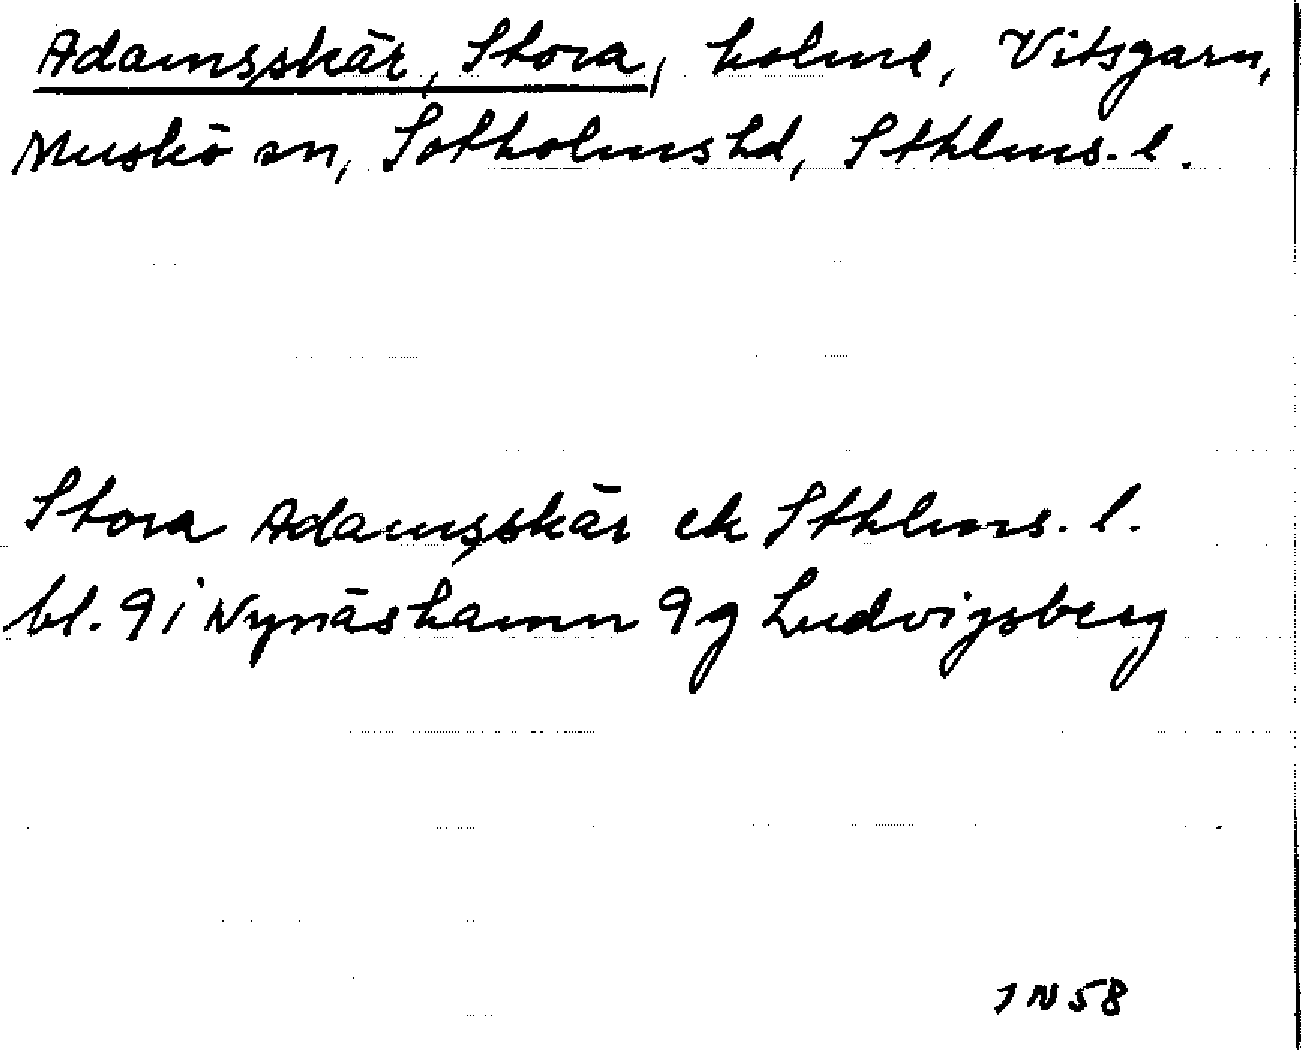 Adamsskär, Stora, holme, Vitsgarn,
Muskö sn, Sotholms hd, Sthlms. l.
Stora Adamsskär ek Sthlms. l.
bl. 91 Nynäshamn 9g Ludvigsberg
IN58